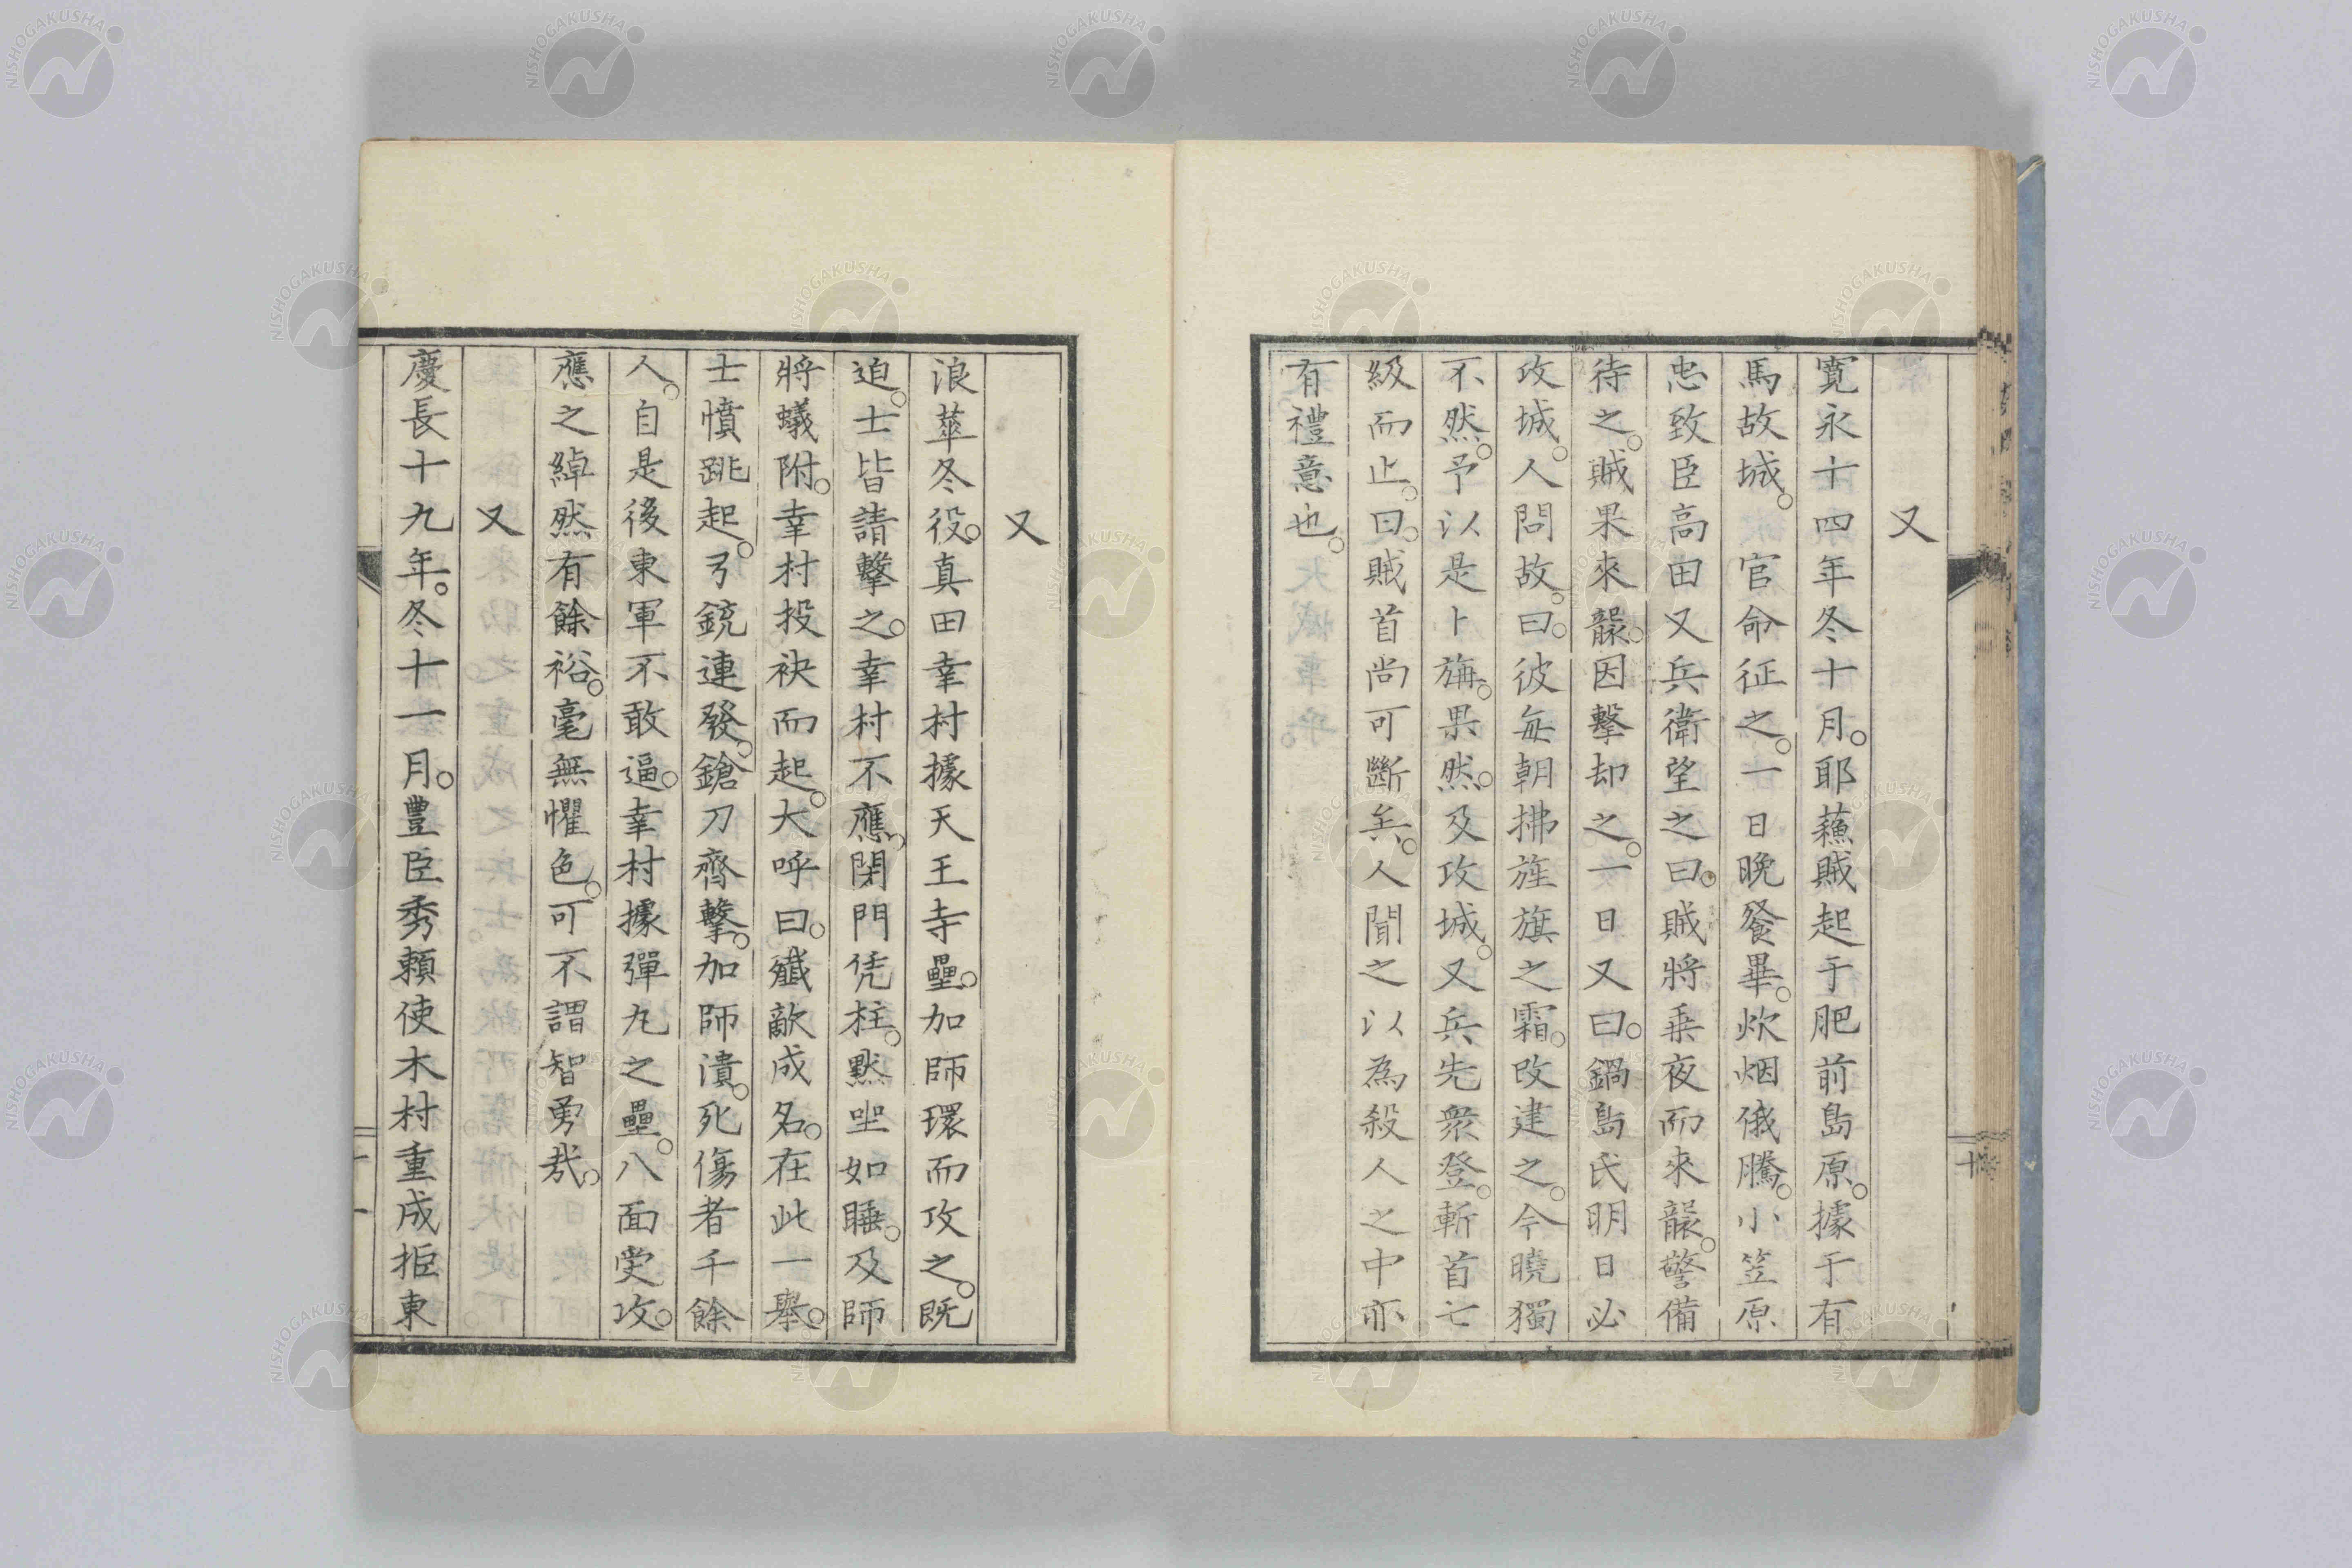 又
寛永十四年冬十月。耶蘓賊起于肥前島原。據于有
馬故城。官命征之。一日晩餐畢。炊烟俄騰。小笠原
忠致臣高田又兵衛望之曰。賊將乗夜而來襲。警備
待之。賊果來襲。因擊却之。一日又曰。鍋島氏明日必
攻城。人問故。曰。彼每朝拂旌旗之霜。改建之。今曉獨
不然。予以是卜旃。果然。及攻城。又兵先衆登。斬首七
級而止。曰。賊首尚可斷矣。人聞之以為殺人之中亦
有禮意也。
又
浪華冬役。真田幸村據天王寺壘。加師環而攻之。既
迫。士皆請擊之。幸村不應。閉門凭柱。默坐如睡。及師
將蟻附。幸村投袂而起。大呼曰。殲敵成名。在此一舉。
士憤跳起。弓銃連發。鎗刀齊擊。加師潰。死傷者千餘
人。自是後東軍不敢逼。幸村據彈丸之壘。八面受攻。
應之綽然有餘裕。毫無懼色。可不謂智勇哉。
又
慶長十九年。冬十一月。豐臣秀頼使木村重成拒東
十
NISHOGAKUSHA